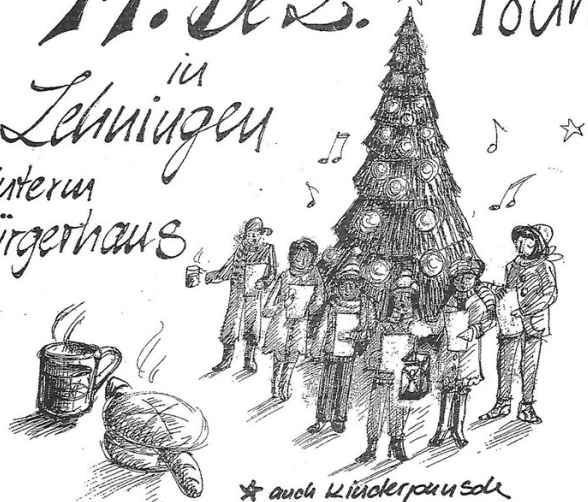 Dez.
in
Lehningen
nterm
ürgerhaus
☆ auch Kinderpunsch